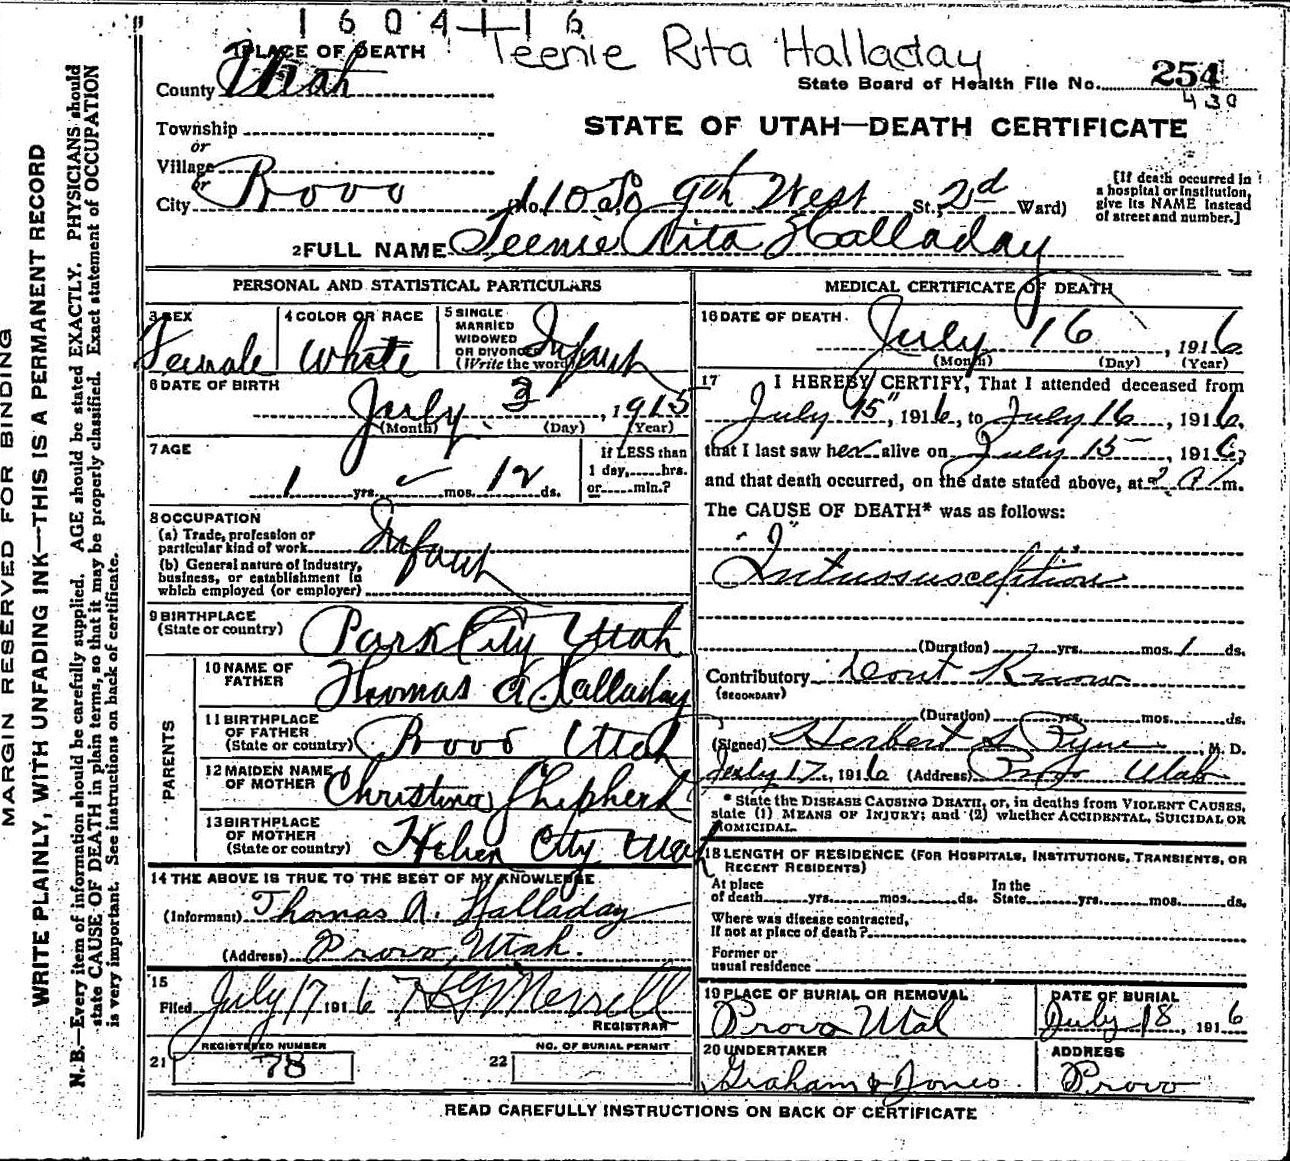 1604116
Teenie Rita Halladay
1 PLACE OF DEATH
County Utah
State Board of Health File No. 254
430
Township
STATE OF UTAH—DEATH CERTIFICATE
or
Village
or
City Provo (No. 110 So 9th West St., 2d Ward)
[If death occurred in
a hospital or institution,
give its NAME instead
of street and number.]
2 FULL NAME Teenie Rita Halladay
PERSONAL AND STATISTICAL PARTICULARS
3 SEX
Female
4 COLOR OR RACE
White
5 SINGLE
MARRIED
WIDOWED
OR DIVORCED
(Write the word)
Infant
6 DATE OF BIRTH
July 3, 1915
(Month) (Day) (Year)
7 AGE
1 yrs. mos. 12 ds.
If LESS than
1 day,......hrs.
or......min.?
8 OCCUPATION
(a) Trade, profession or
particular kind of work
(b) General nature of industry,
business, or establishment in
which employed (or employer)
Infant
9 BIRTHPLACE
(State or country) Park City Utah
PARENTS
10 NAME OF
FATHER Thomas A Halladay
11 BIRTHPLACE
OF FATHER
(State or country) Provo Utah
12 MAIDEN NAME
OF MOTHER Christina Shipherd
13 BIRTHPLACE
OF MOTHER
(State or country) Heber City Utah
14 THE ABOVE IS TRUE TO THE BEST OF MY KNOWLEDGE
(Informant) Thomas A. Halladay
(Address) Provo, Utah.
15
Filed July 17 1916 Merrell
REGISTRAR
REGISTERED NUMBER
21 78
NO. OF BURIAL PERMIT
22
MEDICAL CERTIFICATE OF DEATH
16 DATE OF DEATH
July 16, 1916
(Month) (Day) (Year)
17 I HEREBY CERTIFY, That I attended deceased from
July 15", 1916, to July 16, 1916,
that I last saw her alive on July 15, 1916,
and that death occurred, on the date stated above, at m.
The CAUSE OF DEATH* was as follows:
Intussusception
(Duration) yrs. mos. 1 ds.
Contributory dont Know
(SECONDARY)
(Duration) yrs. mos. ds.
(Signed) Herbert S Pyne, M. D.
July 17, 1916 (Address) Provo Utah
* State the DISEASE CAUSING DEATH, or, in deaths from VIOLENT CAUSES,
state (1) MEANS OF INJURY; and (2) whether ACCIDENTAL, SUICIDAL OR
HOMICIDAL.
18 LENGTH OF RESIDENCE (FOR HOSPITALS, INSTITUTIONS, TRANSIENTS, OR
RECENT RESIDENTS)
At place
of death......yrs......mos......ds.
In the
State......yrs......mos......ds.
Where was disease contracted,
If not at place of death?
Former or
usual residence
19 PLACE OF BURIAL OR REMOVAL
Provo Utah
DATE OF BURIAL
July 18, 1916
20 UNDERTAKER
Graham & Jones
ADDRESS
Provo
READ CAREFULLY INSTRUCTIONS ON BACK OF CERTIFICATE
MARGIN RESERVED FOR BINDING
WRITE PLAINLY, WITH UNFADING INK—THIS IS A PERMANENT RECORD
N.B.—Every item of information should be carefully supplied. AGE should be stated EXACTLY. PHYSICIANS should
state CAUSE OF DEATH in plain terms, so that it may be properly classified. Exact statement of OCCUPATION
is very important. See instructions on back of certificate.